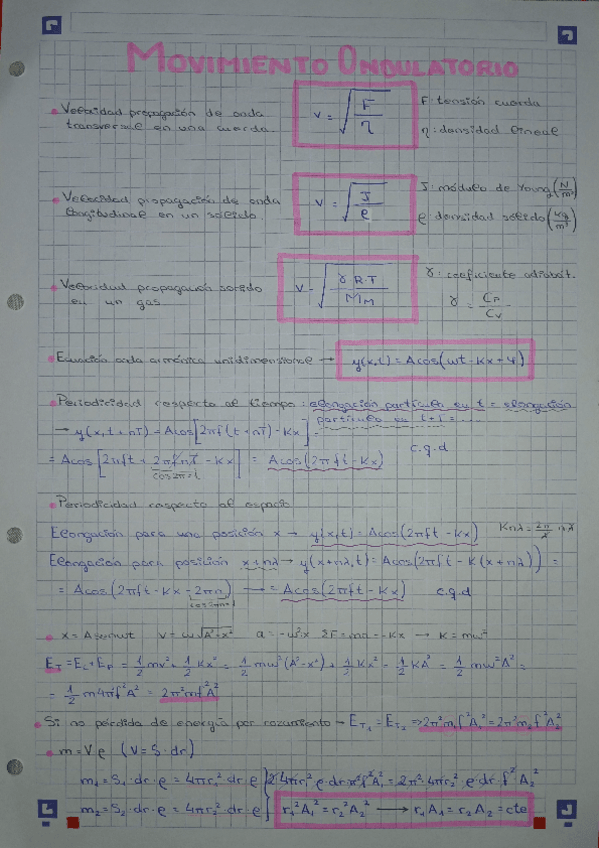 MOVIMIENTO ONDULATORIO
• Velocidad propagación de onda transversal en una cuerda. v = √(F/η) F: tensión cuerda
η: densidad lineal
• Velocidad propagación de onda longitudinal en un sólido. v = √(J/ρ) J: módulo de Young (N/m²)
ρ: densidad sólido (kg/m³)
• Velocidad propagación sonido en un gas. v = √(γ·R·T/M_M) γ: coeficiente adiabát.
γ = C_P/C_V
• Ecuación onda armónica unidimensional → y(x,t) = A cos(ωt - Kx + φ)
• Periodicidad respecto al tiempo: elongación partícula en t = elongación
partícula en t+T = ...
→ y(x, t + nT) = A cos[2πf(t + nT) - Kx]
= A cos[2πft + 2πfnT - Kx] = A cos(2πft - Kx) c.q.d
• Periodicidad respecto al espacio
Elongación para una posición x → y(x,t) = A cos(2πft - Kx) Knλ = 2π/λ nλ
Elongación para posición x+nλ → y(x+nλ, t) = A cos(2πft - K(x+nλ)) =
= A cos(2πft - Kx - 2πn) → = A cos(2πft - Kx) c.q.d
• x = A senωt v = ω√(A²-x²) a = -ω²x ΣF = ma = -Kx → K = mω²
E_T = E_c + E_p = 1/2 mv² + 1/2 Kx² = 1/2 mω²(A²-x²) + 1/2 Kx² = 1/2 KA² = 1/2 mω²A² =
= 1/2 m4πf²A² = 2π²mf²A²
• Si no pérdida de energía por rozamiento → E_T₁ = E_T₂ ⇒ 2π²m₁f²A₁² = 2π²m₂f²A₂²
• m = Vρ (V = S·dr)
m₁ = S₁·dr·ρ = 4πr₁²·dr·ρ } 2·4πr₁²ρ·dr·π²f²A₁² = 2π²·4πr₂²·ρ·dr·f²·A₂²
m₂ = S₂·dr·ρ = 4πr₂²·dr·ρ } r₁²A₁² = r₂²A₂² → r₁A₁ = r₂A₂ = cte